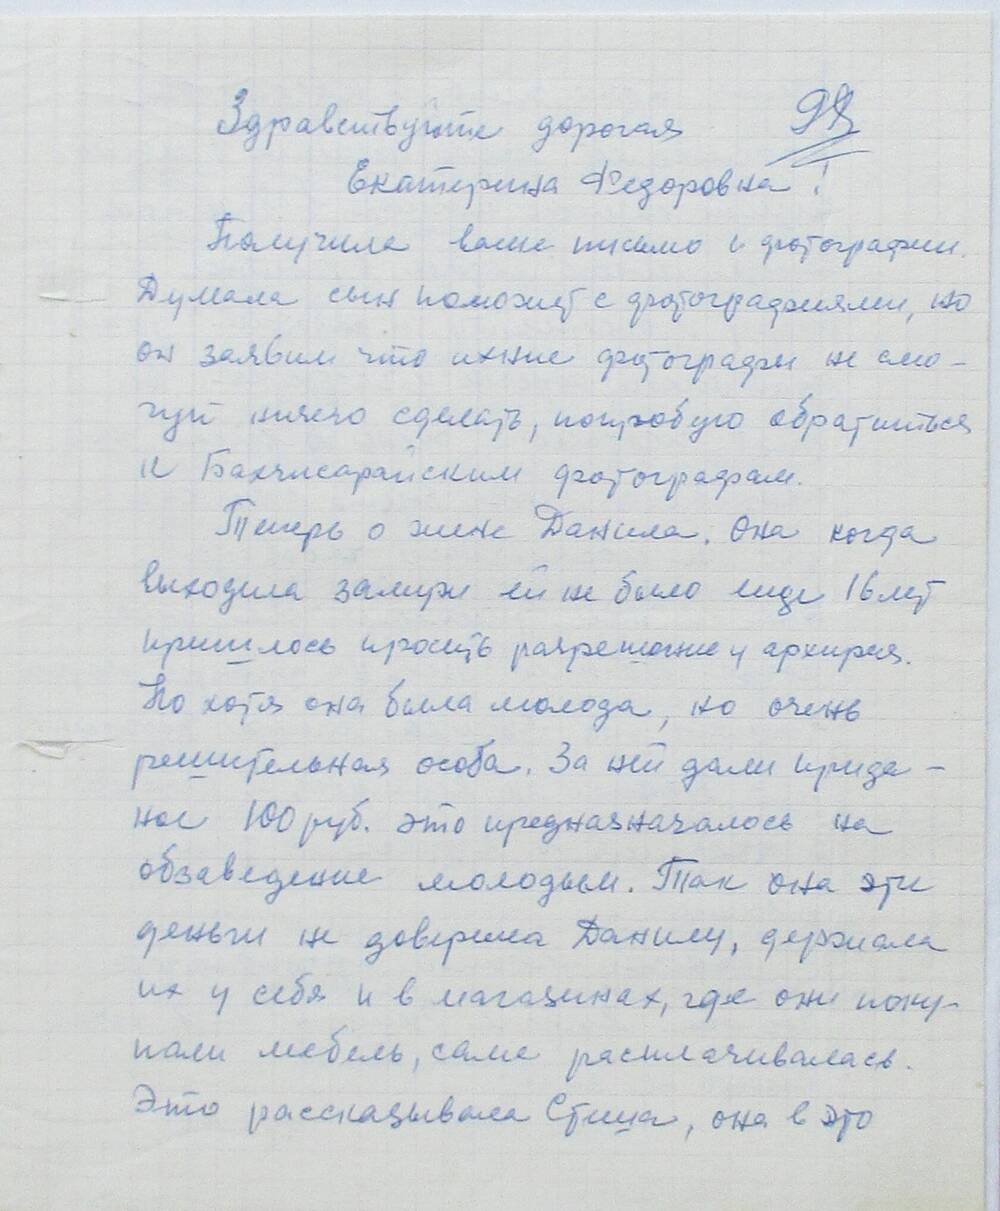 Здравствуйте дорогая
Екатерина Федоровна!
Получила ваше письмо и фотографии.
Думала сын поможет с фотографиями, но
он заявил что ихние фотографы не смо-
гут ничего сделать, попробую обратиться
к Бахчисарайским фотографам.
Теперь о жене Данила. Она когда
выходила замуж ей не было еще 16 лет
пришлось просить разрешение у архирея.
Но хотя она была молода, но очень
решительная особа. За ней дали прида-
ное 100 руб. это предназначалось на
обзаведение молодым. Так она эти
деньги не доверила Данилу, держала
их у себя и в магазинах, где они поку-
пали мебель, сама расплачивалась.
Это рассказывала Стиша, она в это